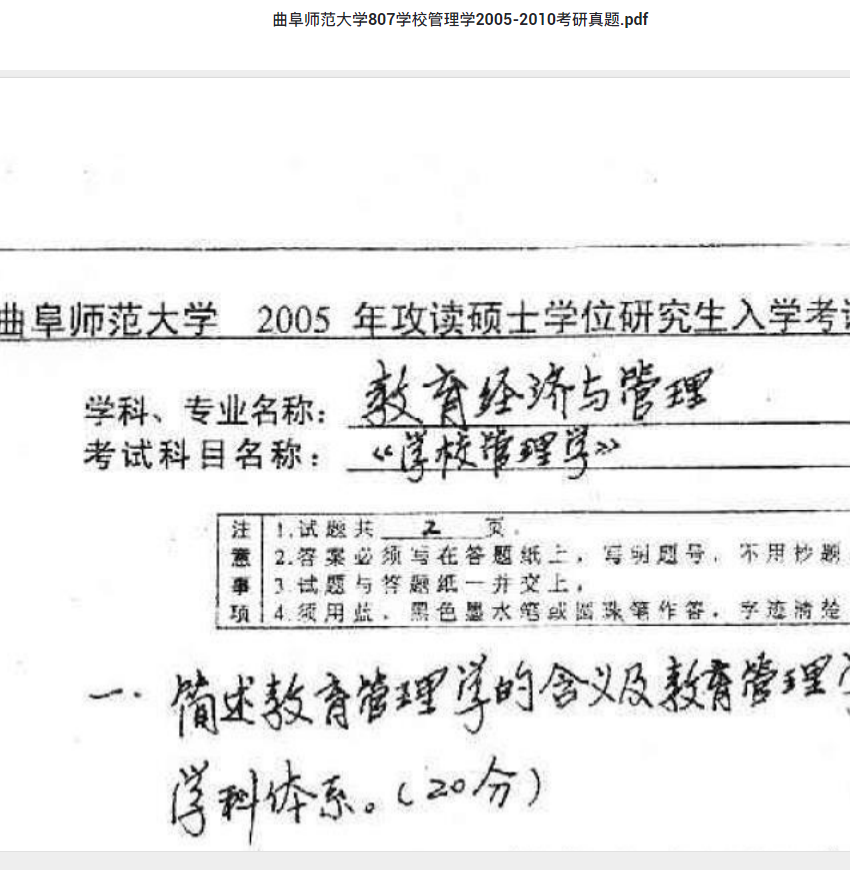 曲阜师范大学807学校管理学2005-2010考研真题.pdf
曲阜师范大学 2005 年攻读硕士学位研究生入学考试
学科、专业名称：教育经济与管理
考试科目名称：《学校管理学》
注意事项
1.试题共 2 页。
2.答案必须写在答题纸上，写明题号，不用抄题
3.试题与答题纸一并交上，
4.须用蓝、黑色墨水笔或圆珠笔作答，字迹清楚
一. 简述教育管理学的含义及教育管理学
学科体系。(20分)